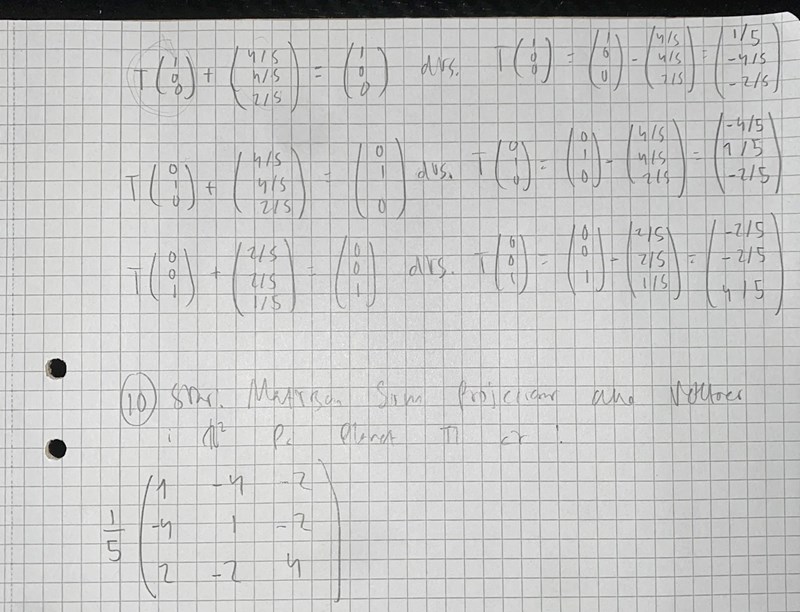 T(1 0 0) + (4/5 4/5 2/5) = (1 0 0) dvs. T(1 0 0) = (1 0 0) - (4/5 4/5 2/5) = (1/5 -4/5 -2/5)
T(0 1 0) + (4/5 4/5 2/5) = (0 1 0) dvs. T(0 1 0) = (0 1 0) - (4/5 4/5 2/5) = (-4/5 1/5 -2/5)
T(0 0 1) + (2/5 2/5 1/5) = (0 0 1) dvs. T(0 0 1) = (0 0 1) - (2/5 2/5 1/5) = (-2/5 -2/5 4/5)
10 svar. Matrisen som
i ℝ² på planet Π är:
1/5 (1 -4 -2
-4 1 -2
2 -2 4)